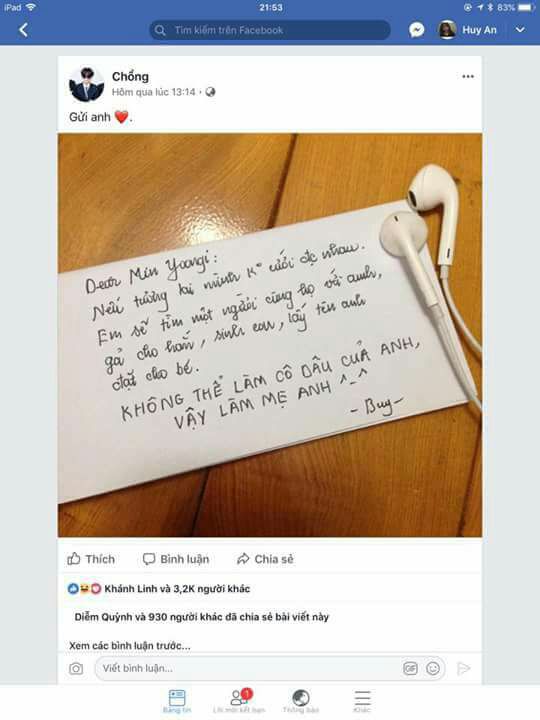 iPad
21:53
83%
Tìm kiếm trên Facebook
Huy An
Chổng
Hôm qua lúc 13:14
Gửi anh ❤.
Dear Min Yoongi:
Nếu tương lai mình K° cưới đc nhau.
Em sẽ tìm một người cùng họ với anh,
gả cho hắn, sinh con, lấy tên anh
đặt cho bé.
KHÔNG THỂ LÀM CÔ DÂU CỦA ANH,
VẬY LÀM MẸ ANH ^-^
-Buy-
Thích Bình luận Chia sẻ
Khánh Linh và 3,2K người khác
Diễm Quỳnh và 930 người khác đã chia sẻ bài viết này
Xem các bình luận trước...
Viết bình luận...
GIF
1
Bảng tin Lời mời kết bạn Thông báo Khác